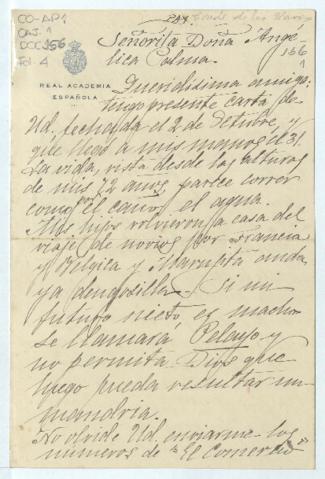 CO-AP1
CAJ. 1
DOC 156
Fol. 4
156
1
Señorita Doña Ange-
lica Palma.
REAL ACADEMIA
ESPAÑOLA
Queridísima amiga:
tengo presente carta de
Ud. fechada el 2 de Octubre, y
que llegó a mis manos el 31.
La vida, vista desde las alturas
de mis 72 años, parece correr
como el caños el agua.
Mis hijos volvieron a casa del
viaje de novios por Francia
y Bélgica y Marujita anda
ya dengosilla. Si mi
futuro nieto es macho
se llamará Pelayo y
no permita Dios que
luego pueda resultar un
mandria.
No olvide Ud. enviarme los
números de "El Comercio"